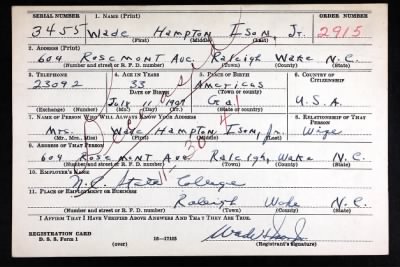 SERIAL NUMBER 1. NAME (Print) ORDER NUMBER
3455 Wade Hampton Ison, Jr. 2915
(First) (Middle) (Last)
2. ADDRESS (Print)
604 Rosemont Ave. Raleigh Wake N.C.
(Number and street or R. F. D. number) (Town) (County) (State)
3. TELEPHONE 4. AGE IN YEARS 5. PLACE OF BIRTH 6. COUNTRY OF CITIZENSHIP
23092 33 Americus
DATE OF BIRTH (Town or county)
July 11, Ga. U.S.A.
(Exchange) (Number) (Mo.) (Day) (Yr.) (State or country)
7. NAME OF PERSON WHO WILL ALWAYS KNOW YOUR ADDRESS 8. RELATIONSHIP OF THAT PERSON
Mrs. Wade Hampton Ison, Jr. Wife
(Mr., Mrs., Miss) (First) (Middle) (Last)
9. ADDRESS OF THAT PERSON
604 Rosemont Ave Raleigh, Wake N.C.
(Number and street or R. F. D. number) (Town) (County) (State)
10. EMPLOYER'S NAME
N.C. State College
11. PLACE OF EMPLOYMENT OR BUSINESS
Raleigh Wake N.C.
(Number and street or R. F. D. number) (Town) (County) (State)
I AFFIRM THAT I HAVE VERIFIED ABOVE ANSWERS AND THAT THEY ARE TRUE.
REGISTRATION CARD
D. S. S. Form 1 (over) 16—17105 (Registrant's signature)